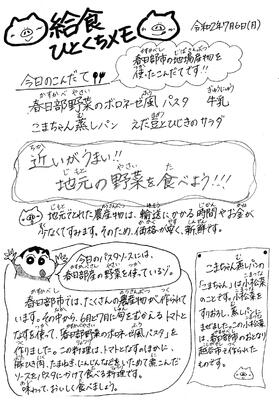 給食
ひとくちメモ
令和2年7月6日(月)
今日のこんだて
春日部市の地場産物を
使ったこんだてです!!
春日部野菜のボロネーゼ風パスタ 牛乳
こまちゃん蒸しパン えだ豆とひじきのサラダ
近いがうまい!!
地元の野菜を食べよう!!!
地元でとれた農産物は、輸送にかかる時間やお金が
少なくてすみます。そのため、価格が安く、新鮮です。
今日のパスタソースには、
春日部産の野菜を使っているゾ。
春日部市では、たくさんの農産物が作られて
います。その中から、6月と7月に旬をむかえるトマトと
なすを使って、「春日部野菜のボロネーゼ風パスタ」を
作りました。この料理は、トマトとなすのほかに、
豚ひき肉、たまねぎ、にんじんなどをいためて煮こんだ
ソースをパスタにかけて食べる料理です。
味わって、おいしく食べましょう。
こまちゃん蒸しパンの
「こまちゃん」は小松菜
のことです。小松菜を
すりおろし、蒸しパンに
まぜました。この小松菜
は、春日部市のおとなり
越谷市で作られた
ものです。